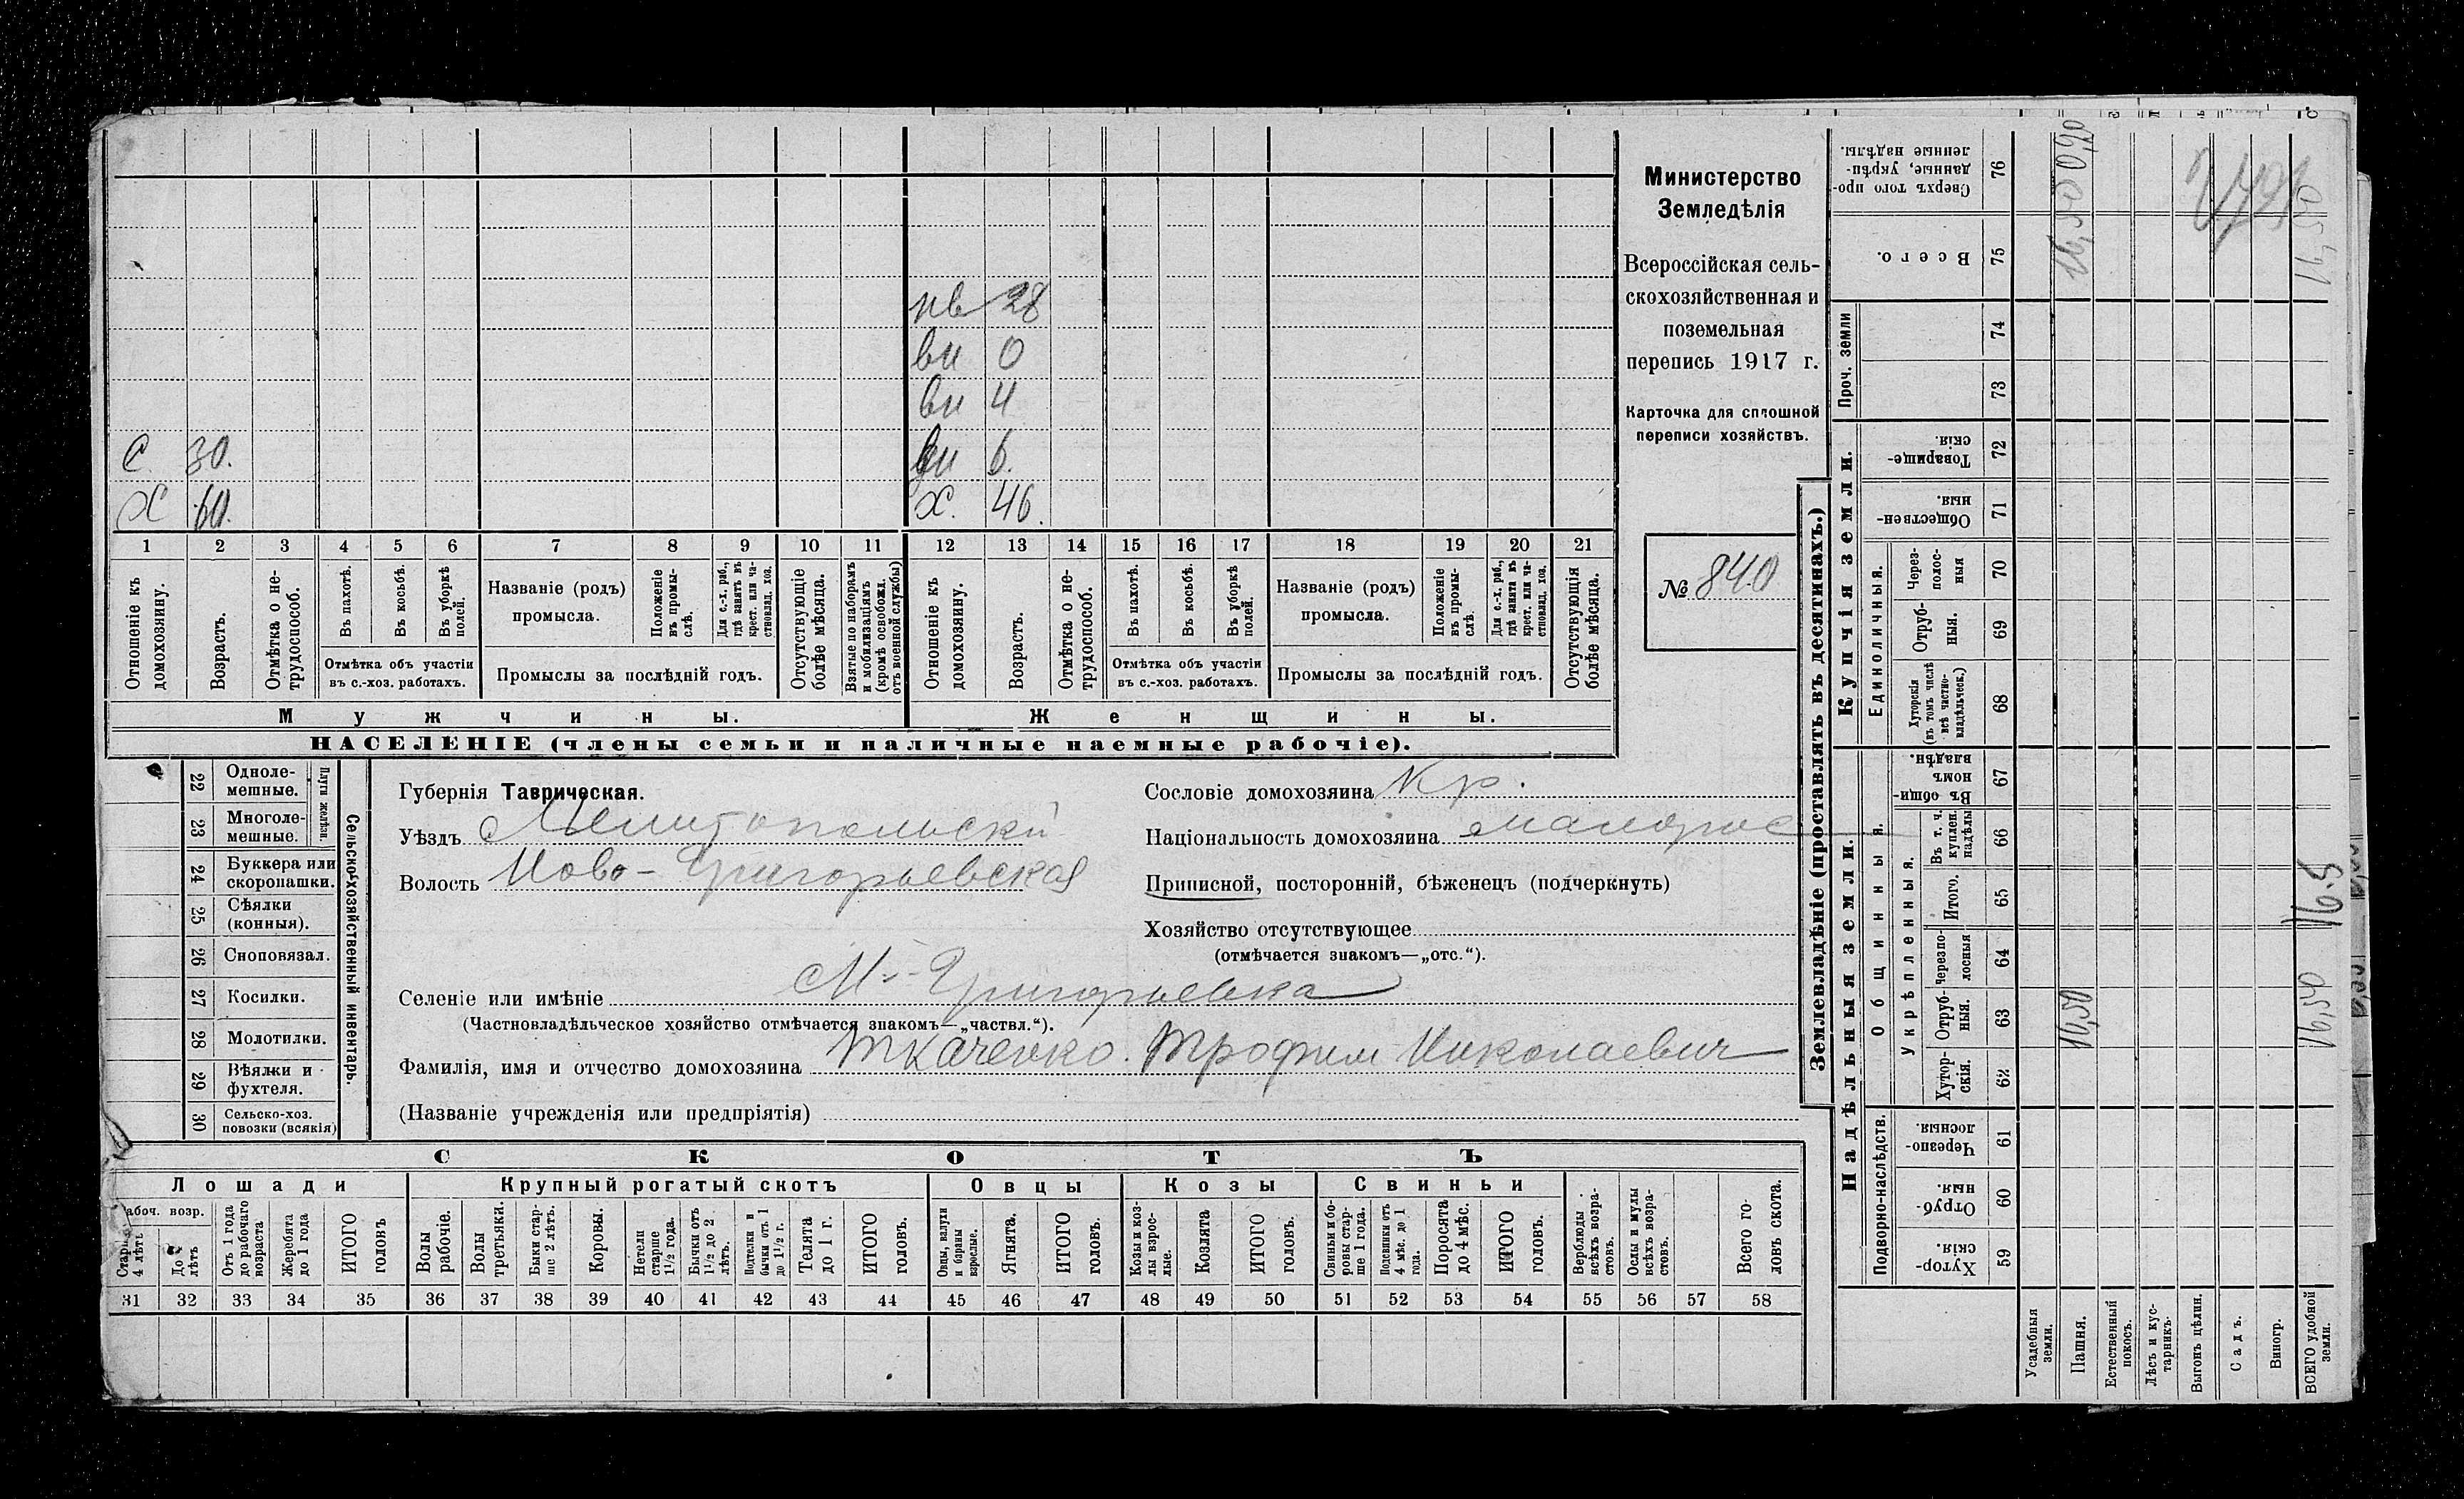 С 30.
Х 60.
нв 28
вн 0
вн 4
вн 6.
Х. 46.
1 2 3 4 5 6 7 8 9 10 11 12 13 14 15 16 17 18 19 20 21
Отношеніе къ домохозяину.
Возрастъ.
Отмѣтка о не-трудоспособ.
Въ пахотѣ.
Въ косьбѣ.
Въ уборкѣ полей.
Отмѣтка объ участіи
въ с.-хоз. работахъ.
Названіе (родъ)
промысла.
Положеніе въ промы-слѣ.
Для с.-х. раб., гдѣ занятъ въ крест. или ча-стновлад. хоз.
Промыслы за послѣдній годъ.
Отсутствующіе болѣе мѣсяца.
Взятые по наборамъ и мобилизаціямъ (кромѣ освобожд. отъ военной службы)
Отношеніе къ домохозяину.
Возрастъ.
Отмѣтка о не-трудоспособ.
Въ пахотѣ.
Въ косьбѣ.
Въ уборкѣ полей.
Отмѣтка объ участіи
въ с.-хоз. работахъ.
Названіе (родъ)
промысла.
Положеніе въ промы-слѣ.
Для с.-х. раб., гдѣ занята въ крест. или ча-стновлад. хоз.
Промыслы за послѣдній годъ.
Отсутствующія болѣе мѣсяца.
Мужчины.
Женщины.
НАСЕЛЕНІЕ (члены семьи и наличные наемные рабочіе).
Министерство
Земледѣлія
Всероссійская сель-
скохозяйственная и
поземельная
перепись 1917 г.
Карточка для сплошной
переписи хозяйствъ.
№ 840
22 Одноле-мешные.
23 Многоле-мешные.
Плуги желѣзн.
24 Буккера или скоропашки.
25 Сѣялки (конныя).
26 Сноповязал.
27 Косилки.
28 Молотилки.
29 Вѣялки и фухтеля.
30 Сельско-хоз. повозки (всякія)
Сельско-хозяйственный инвентарь.
Губернія Таврическая.
Уѣздъ Мелитопольскій
Волость Ново-Григорьевская
Сословіе домохозяина Кр.
Національность домохозяина малорос
Приписной, посторонній, бѣженецъ (подчеркнуть)
Хозяйство отсутствующее
(отмѣчается знакомъ—„отс.“).
Селеніе или имѣніе Н-Григорьевка
(Частновладѣльческое хозяйство отмѣчается знакомъ—„частвл.“).
Фамилія, имя и отчество домохозяина Ткаченко. Трофим Николаевич
(Названіе учрежденія или предпріятія)
СКОТЪ
Лошади
Крупный рогатый скотъ
Овцы
Козы
Свиньи
абоч. возр.
4 лѣтъ
лѣтъ
Отъ 1 года до рабочаго возраста
Жеребята до 1 года
ИТОГО головъ
Волы рабочіе.
Волы третьяки.
Быки стар-ше 2 лѣтъ.
Коровы.
Нетели старше 1½ года.
Бычки отъ 1½ до 2 лѣтъ.
Подтелки и бычки отъ 1 до 1½ г.
Телята до 1 г.
ИТОГО головъ.
Овцы, валухи и бараны взрослые.
Ягнята.
ИТОГО головъ.
Козы и коз-лы взрос-лые.
Козлята
ИТОГО головъ.
Свиньи и бо-ровы стар-ше 1 года.
Подсвинки отъ 4 мѣс. до 1 года.
Поросята до 4 мѣс.
ИТОГО головъ.
Верблюды всѣхъ возра-стовъ.
Ослы и мулы всѣхъ возра-стовъ.
Всего го-ловъ скота.
31 32 33 34 35 36 37 38 39 40 41 42 43 44 45 46 47 48 49 50 51 52 53 54 55 56 57 58
Землевладѣніе (проставлять въ десятинахъ.)
Надѣльныя земли.
Купчія земли.
Проч. земли
Подворно-наслѣдств.
Общинныя.
Укрѣпленныя.
Единоличныя.
59 Хутор-скія.
60 Отруб-ныя.
61 Черезпо-лосныя.
62 Хутор-скія.
63 Отруб-ныя.
64 Черезпо-лосныя
65 Итого.
66 Въ т. ч. куплен. надѣлы
67 Въ общи-номъ владѣн.
68 Хуторскія (въ томъ числѣ всѣ частно-владѣльческ.)
69 Отруб-ныя.
70 Через-полос-ныя
71 Обществен-ныя.
72 Товарище-скія.
73
74
75 Всего.
76 Сверхъ того про-данные, укрѣп-ленные надѣлы.
Усадебныя земли.
Пашня.
Естественный покосъ.
Лѣсъ и кус-тарникъ.
Выгонъ цѣлин.
Садъ.
Виногр.
ВСЕГО удобной земли.
16,50
16,50
16,50
16.5
16,50